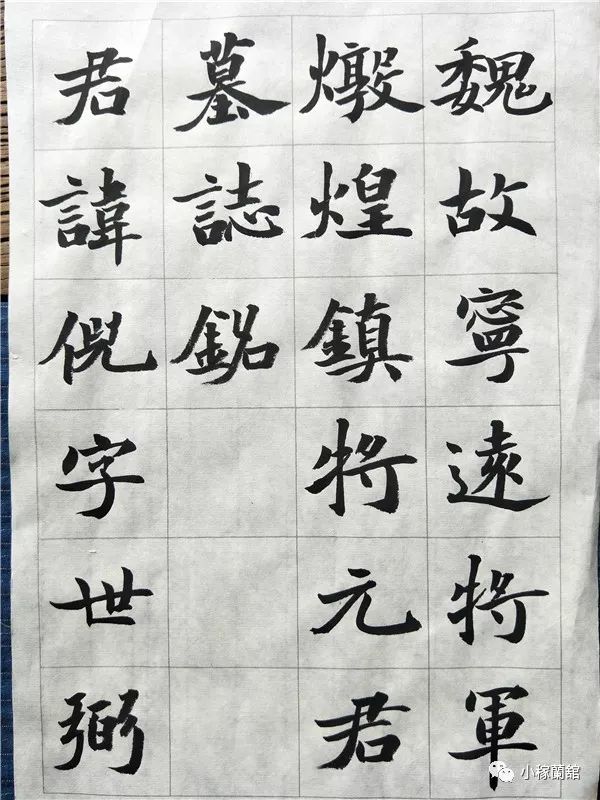 魏故寧遠將軍
燉煌鎮將元君
墓誌銘
君諱倪字世弼
小稼蘭舘